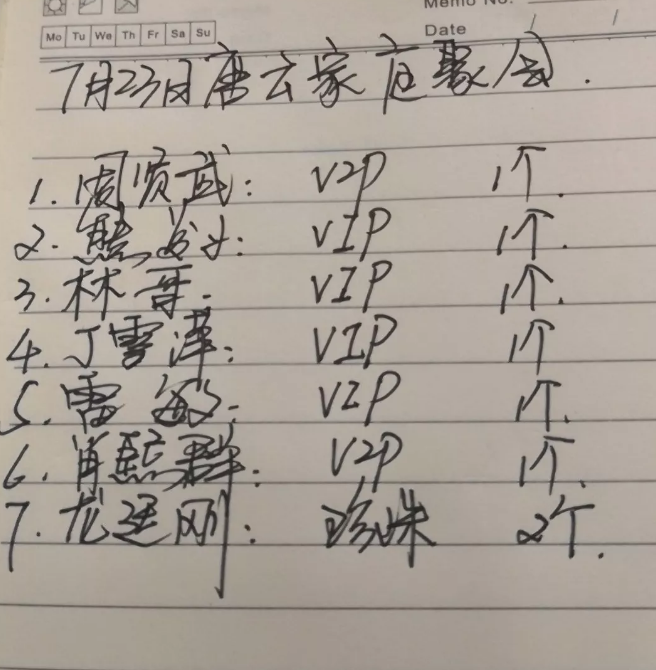 Memo No.
Mo Tu We Th Fr Sa Su
Date / /
7月23日唐云家庭聚会.
1.周贤武: VIP 1个.
2.熊 VIP 1个.
3.林哥. VIP 1个.
4.丁雪萍: VIP 1个
5.雷敏: VIP 1个.
6.肖熙群: VIP 1个.
7.龙运刚: 珍珠 2个.